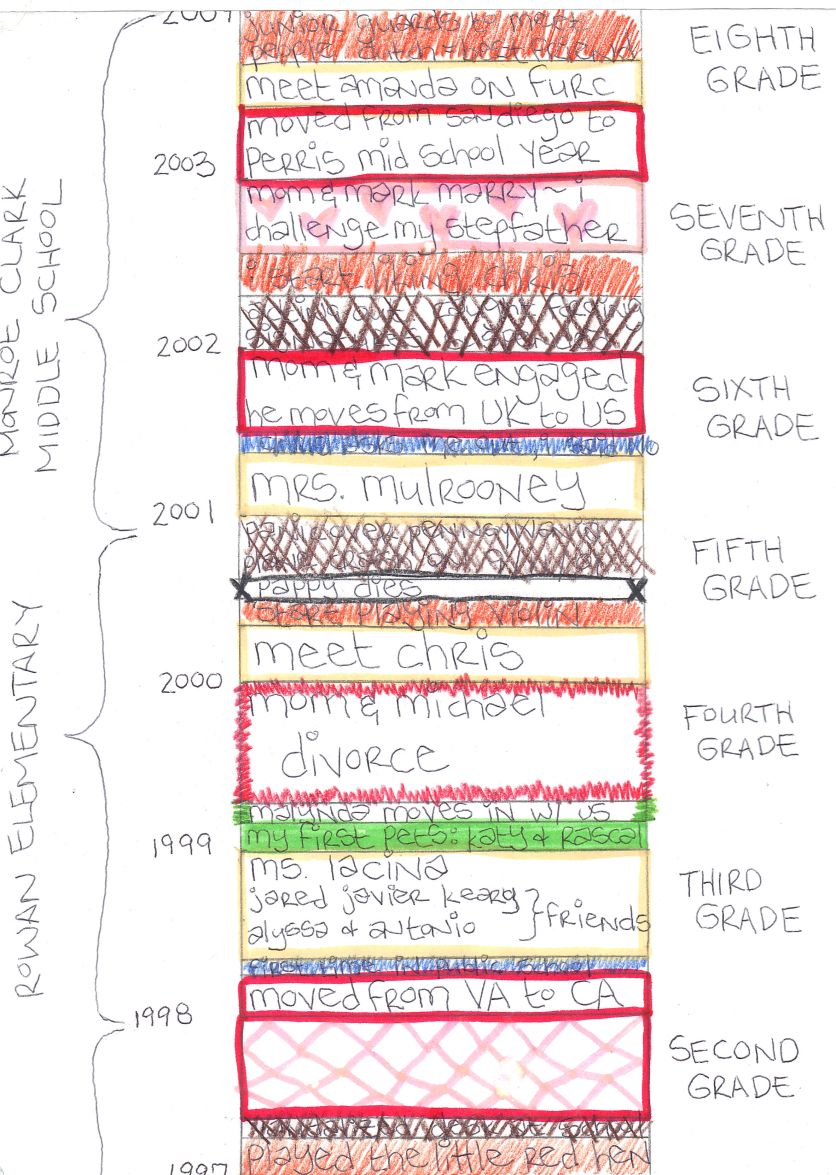 junior guards to meet
people
EIGHTH
GRADE
meet amanda on FURC
moved from san diego to
Perris mid school year
2003
mom & mark marry ~ i
challenge my stepfather
SEVENTH
GRADE
i start liking chris
MONROE CLARK
MIDDLE SCHOOL
2002
mom & mark engaged
he moves from UK to US
SIXTH
GRADE
mrs. mulrooney
2001
FIFTH
GRADE
pappy dies
start playing violin
meet chris
2000
mom & michael
divorce
FOURTH
GRADE
malynda moves in w/ us
my first pets: katy & rascal
1999
ROWAN ELEMENTARY
ms. lacina
jared javier kearg
alyssa & antonio
friends
THIRD
GRADE
first time in public school
moved from VA to CA
1998
SECOND
GRADE
played the little red hen
1997